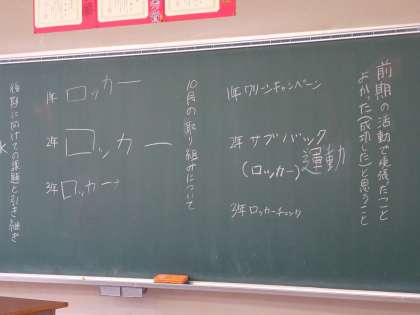 前期の活動で頑張ったこと
よかった(成功した)と思うこと
1年クリーンキャンペーン
2年サブバック
(ロッカー)運動
3年ロッカーチェック
10月の取り組みについて
1年ロッカー
2年ロッカー
3年ロッカー
後期に向けての課題と引き継ぎ